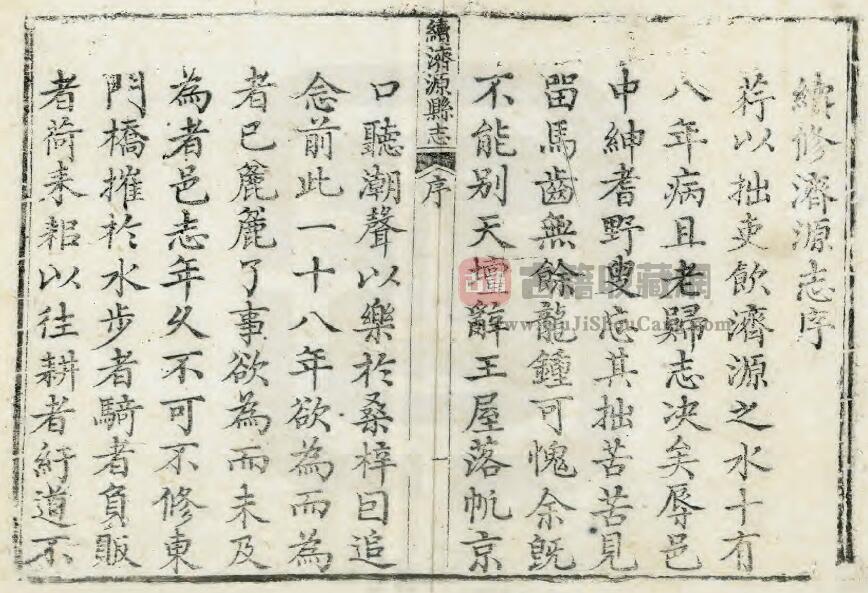 續修濟源志序
荇以拙吏飲濟源之水十有
八年病且老歸志决矣辱邑
中紳耆野叟忘其拙苦苦見
畱馬齒無餘龍鍾可愧余旣
不能别天壇辭王屋落帆京
續濟源縣志
序
一
口聽潮聲以樂於桑梓囙追
念前此一十八年欲為而為
者已麄麄了事欲為而未及
為者邑志年久不可不修東
門橋摧於水步者騎者負販
者荷耒耜以往耕者紆道不
古籍
古籍收藏網
www.GuJiShouCang.com